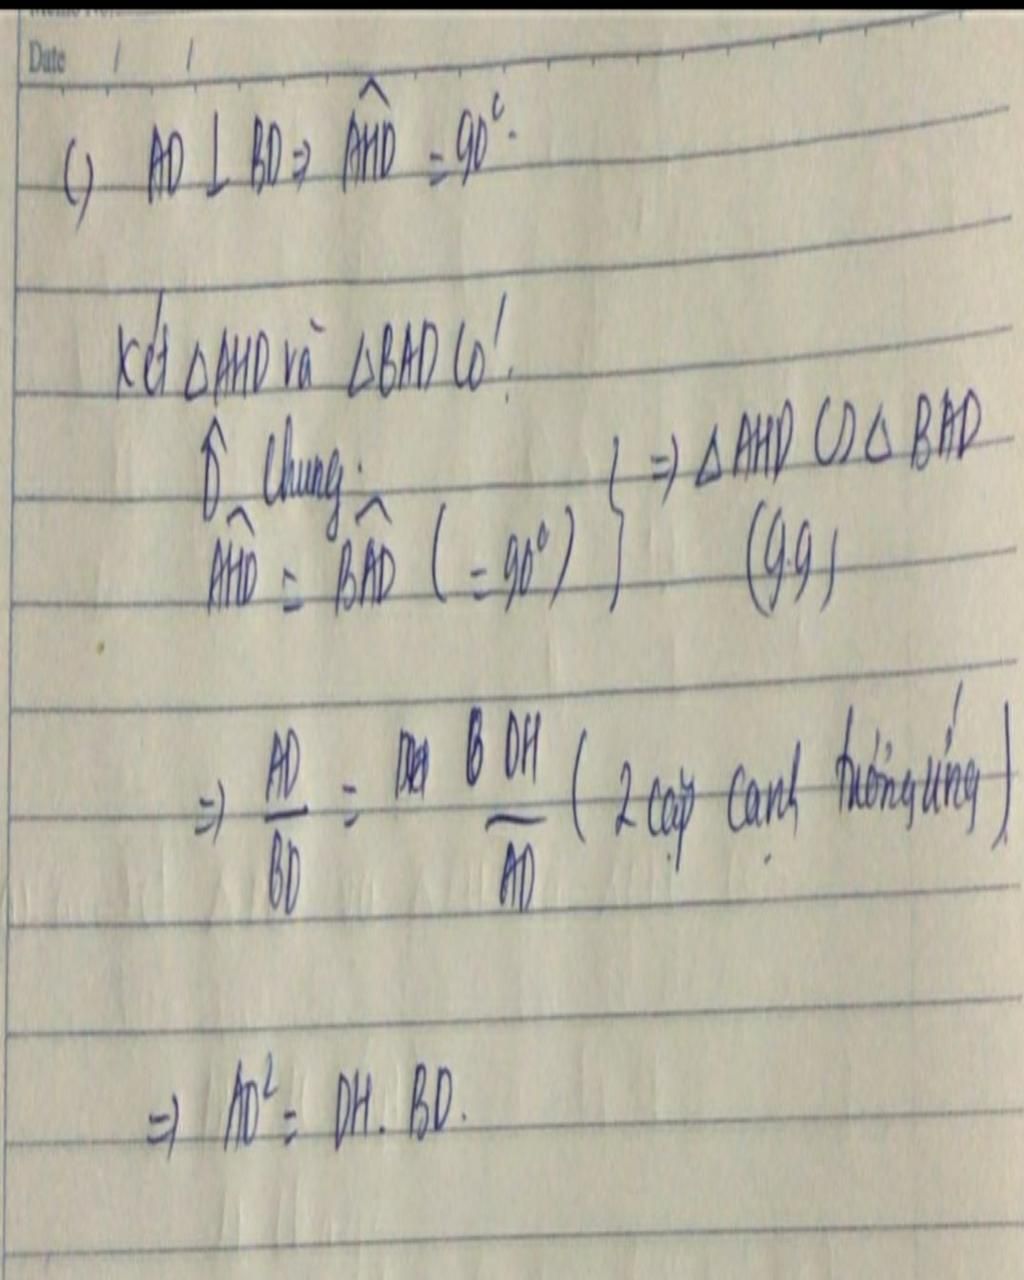 Date / /
c) AD ⊥ BD ⇒ \widehat{AHD} = 90°.
Xét △AHD và △BAD có:
\widehat{D} chung.
\widehat{AHD} = \widehat{BAD} (= 90°) } ⇒ △AHD ∽ △BAD
(g.g)
⇒ AD/BD = DH/AD (2 cặp cạnh tương ứng)
⇒ AD² = DH. BD.